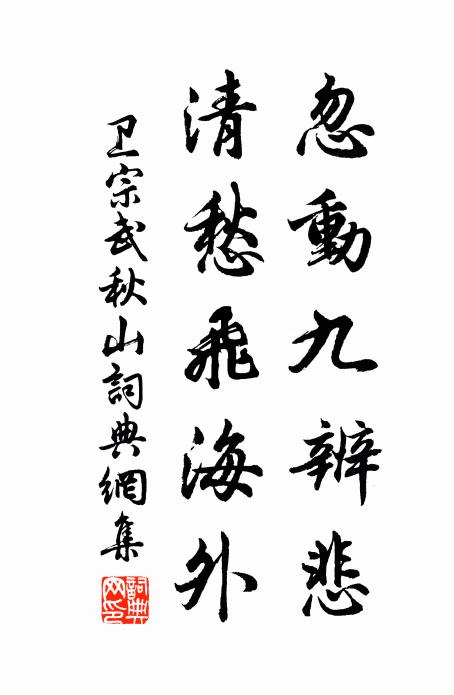 忽動九辨悲
清愁飛海外
卫宗武秋山詞典網集
詞典
网印